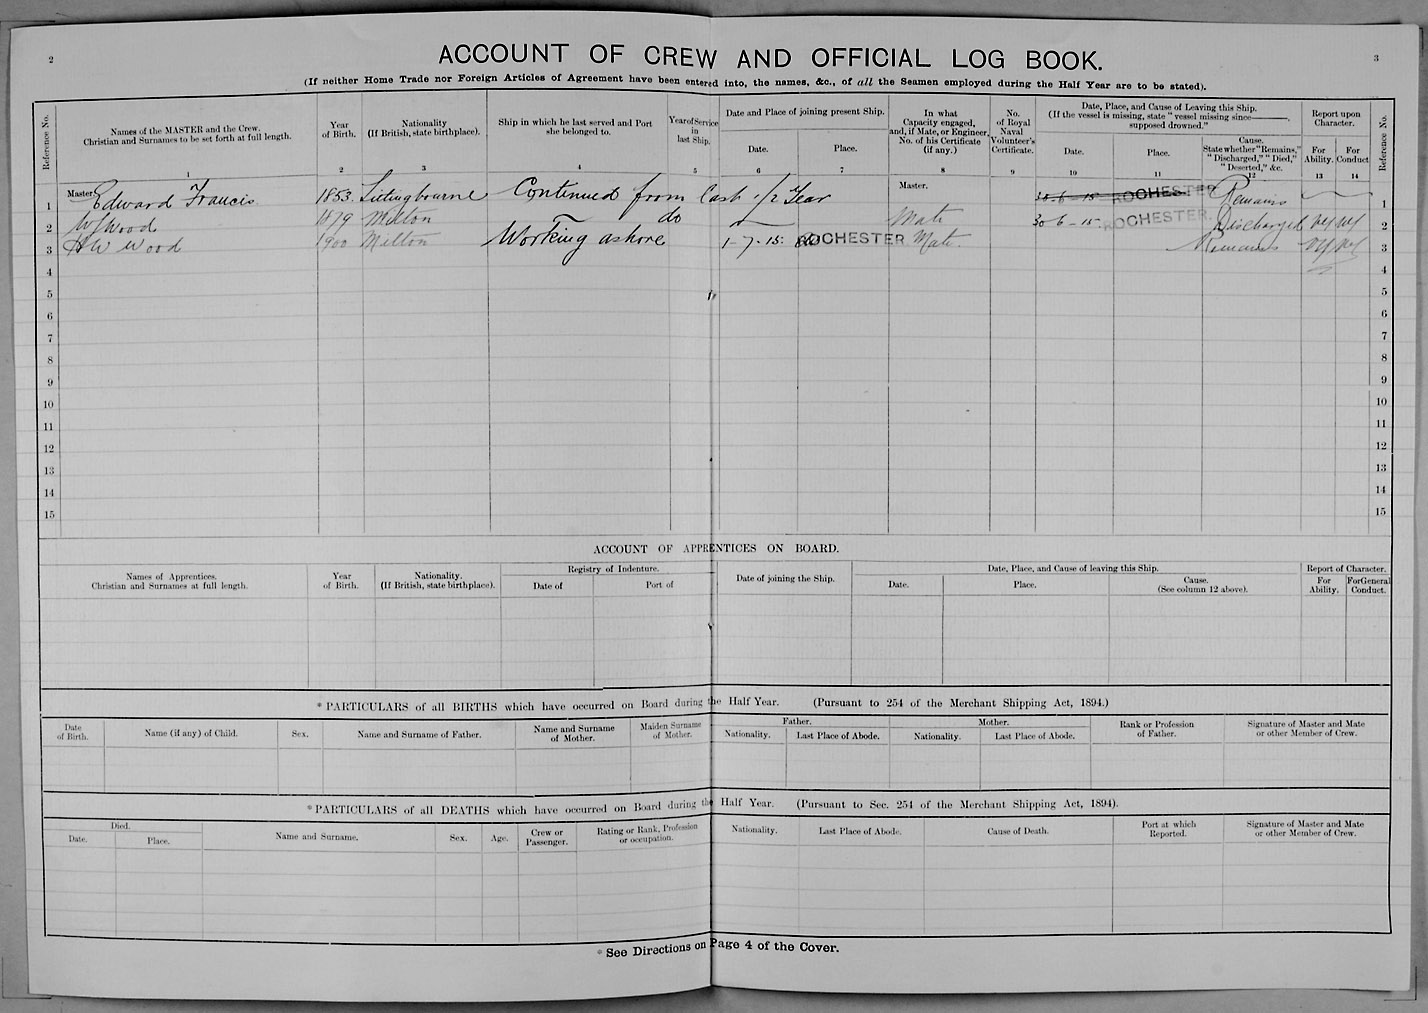 2
3
ACCOUNT OF CREW AND OFFICIAL LOG BOOK.
(If neither Home Trade nor Foreign Articles of Agreement have been entered into, the names, &c., of all the Seamen employed during the Half Year are to be stated).
Reference No.
Names of the MASTER and the Crew.
Christian and Surnames to be set forth at full length.
1
Year
of Birth.
2
Nationality
(If British, state birthplace).
3
Ship in which he last served and Port
she belonged to.
4
Year of Service
in
last Ship.
5
Date and Place of joining present Ship.
Date.
6
Place.
7
In what
Capacity engaged,
and, if Mate, or Engineer,
No. of his Certificate
(if any.)
8
No.
of Royal
Naval
Volunteer's
Certificate.
9
Date, Place, and Cause of Leaving this Ship.
(If the vessel is missing, state "vessel missing since———,
supposed drowned."
Date.
10
Place.
11
Cause.
State whether "Remains,"
"Discharged," "Died,"
"Deserted," &c.
12
Report upon
Character.
For
Ability.
13
For
Conduct
14
Reference No.
1 Master Edward Francis 1853 Sittingbourne Continued from Last 1/2 Year Master. 30-6-15 ROCHESTER Remains 1
2 W Wood 1879 Milton do Mate 30-6-15 ROCHESTER. Discharged VG VG 2
3 H W Wood 1900 Milton Working ashore 1-7-15 ROCHESTER Mate. Remains VG VG 3
4 4
5 5
6 6
7 7
8 8
9 9
10 10
11 11
12 12
13 13
14 14
15 15
ACCOUNT OF APPRENTICES ON BOARD.
Names of Apprentices.
Christian and Surnames at full length.
Year
of Birth.
Nationality.
(If British, state birthplace).
Registry of Indenture.
Date of
Port of
Date of joining the Ship.
Date, Place, and Cause of leaving this Ship.
Date.
Place.
Cause.
(See column 12 above).
Report of Character.
For
Ability.
For General
Conduct.
* PARTICULARS of all BIRTHS which have occurred on Board during the Half Year. (Pursuant to 254 of the Merchant Shipping Act, 1894.)
Date
of Birth.
Name (if any) of Child.
Sex.
Name and Surname of Father.
Name and Surname
of Mother.
Maiden Surname
of Mother.
Father.
Nationality.
Last Place of Abode.
Mother.
Nationality.
Last Place of Abode.
Rank or Profession
of Father.
Signature of Master and Mate
or other Member of Crew.
* PARTICULARS of all DEATHS which have occurred on Board during the Half Year. (Pursuant to Sec. 254 of the Merchant Shipping Act, 1894).
Died.
Date.
Place.
Name and Surname.
Sex.
Age.
Crew or
Passenger.
Rating or Rank, Profession
or occupation.
Nationality.
Last Place of Abode.
Cause of Death.
Port at which
Reported.
Signature of Master and Mate
or other Member of Crew.
* See Directions on Page 4 of the Cover.